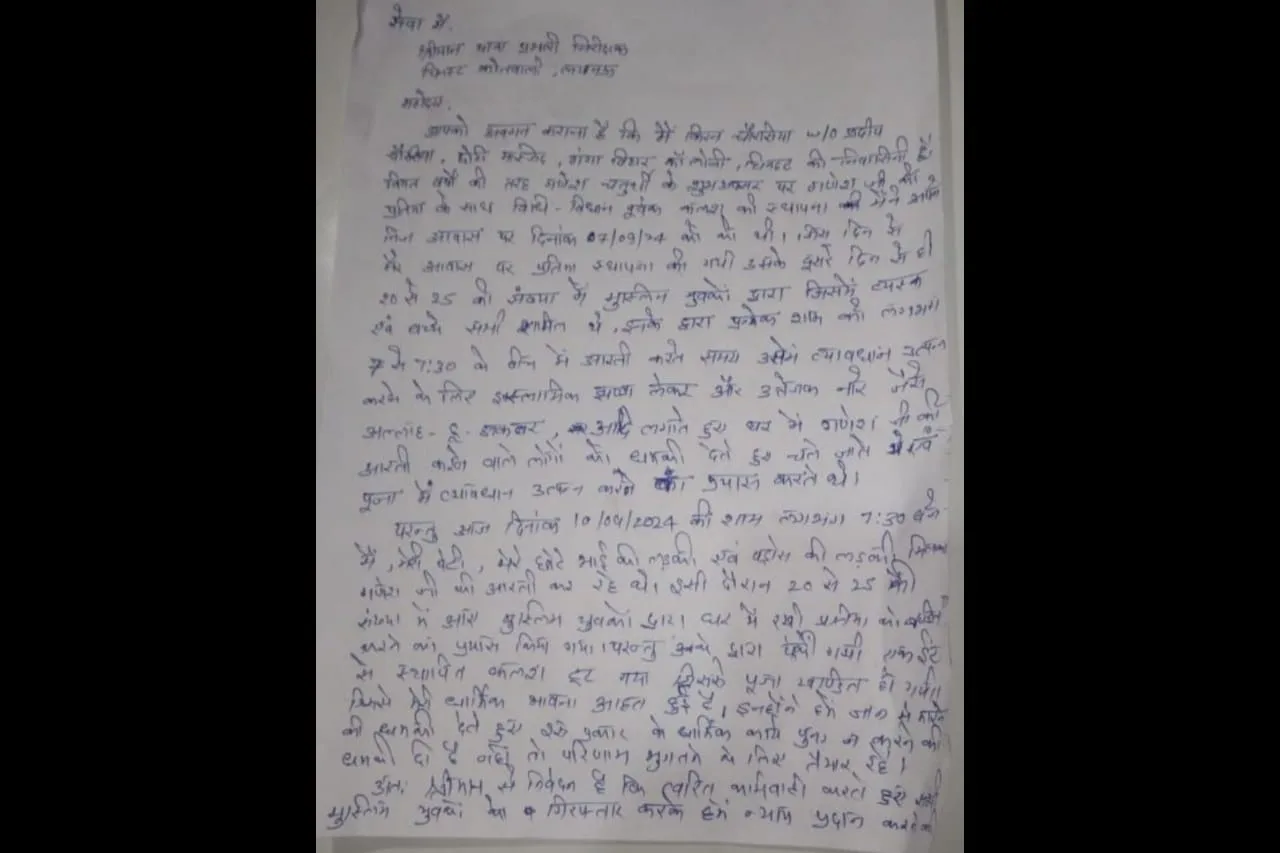 सेवा में,
श्रीमान थाना प्रभारी निरीक्षक
चिनहट कोतवाली, लखनऊ
महोदय,
आपको अवगत कराना है कि मैं किरन चौरसिया w/o प्रदीप
चौरसिया, छोटी मस्जिद, गंगा विहार कॉलोनी, चिनहट की निवासिनी हूँ
विगत वर्षो की तरह गणेश चतुर्थी के शुभअवसर पर गणेश जी की
प्रतिमा के साथ विधि-विधान पूर्वक कलश की स्थापना मैंने अपने
निज आवास पर दिनांक 07/09/24 को की थी। जिस दिन से
मेरे आवास पर प्रतिमा स्थापना की गयी उसके दूसरे दिन से ही
20 से 25 की संख्या में मुस्लिम युवकों द्वारा जिसमें व्यस्क
एवं बच्चे सभी शामिल थे, इनके द्वारा प्रत्येक शाम को लगभग
7 से 7:30 के बीच में आरती करते समय उसमें व्यावधान उत्पन्न
करने के लिए इस्लामिक झण्डा लेकर और उत्तेजक नारे जैसे
अल्लाह-हू-अकबर, आदि लगाते हुए घर में गणेश जी की
आरती करने वाले लोगों को धमकी देते हुए चले जाते थे एवं
पूजा में व्यावधान उत्पन्न करने का प्रयास करते थे।
परन्तु आज दिनांक 10/09/2024 की शाम लगभग 7:30 बजे
मैं, मेरी बेटी, मेरे छोटे भाई की लड़की एवं पड़ोस की लड़की मिलकर
गणेश जी की आरती कर रहे थे। इसी दौरान 20 से 25 की
संख्या में आये मुस्लिम युवकों द्वारा घर में रखी प्रतिमा को खण्डित
करने का प्रयास किया गया। परन्तु उनके द्वारा फेंकी गयी एक ईंट
से स्थापित कलश टूट गया जिससे पूजा खण्डित हो गयी।
जिससे मेरी धार्मिक भावना आहत हुई है। इन्होंने हमें जान से मारने
की धमकी देते हुए इस प्रकार के धार्मिक कार्य पुनः न करने की
धमकी दी है नहीं तो परिणाम भुगतने के लिए तैयार रहें।
अतः श्रीमान से निवेदन है कि त्वरित कार्यवाही करते हुए सभी
मुस्लिम युवकों को गिरफ्तार करके हमें न्याय प्रदान करने की